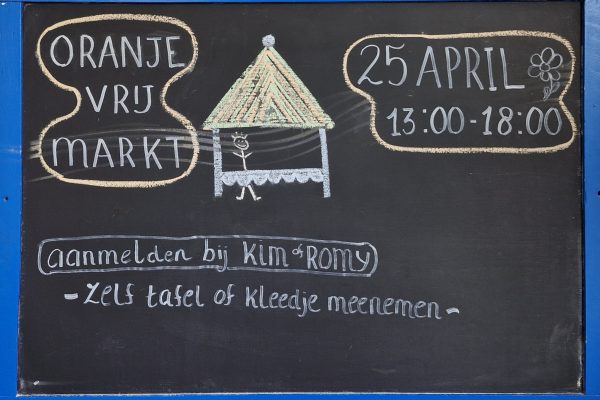 ORANJE
VRIJ
MARKT
25 APRIL
13:00-18:00
aanmelden bij KIM of ROMY
- Zelf tafel of kleedje meenemen -